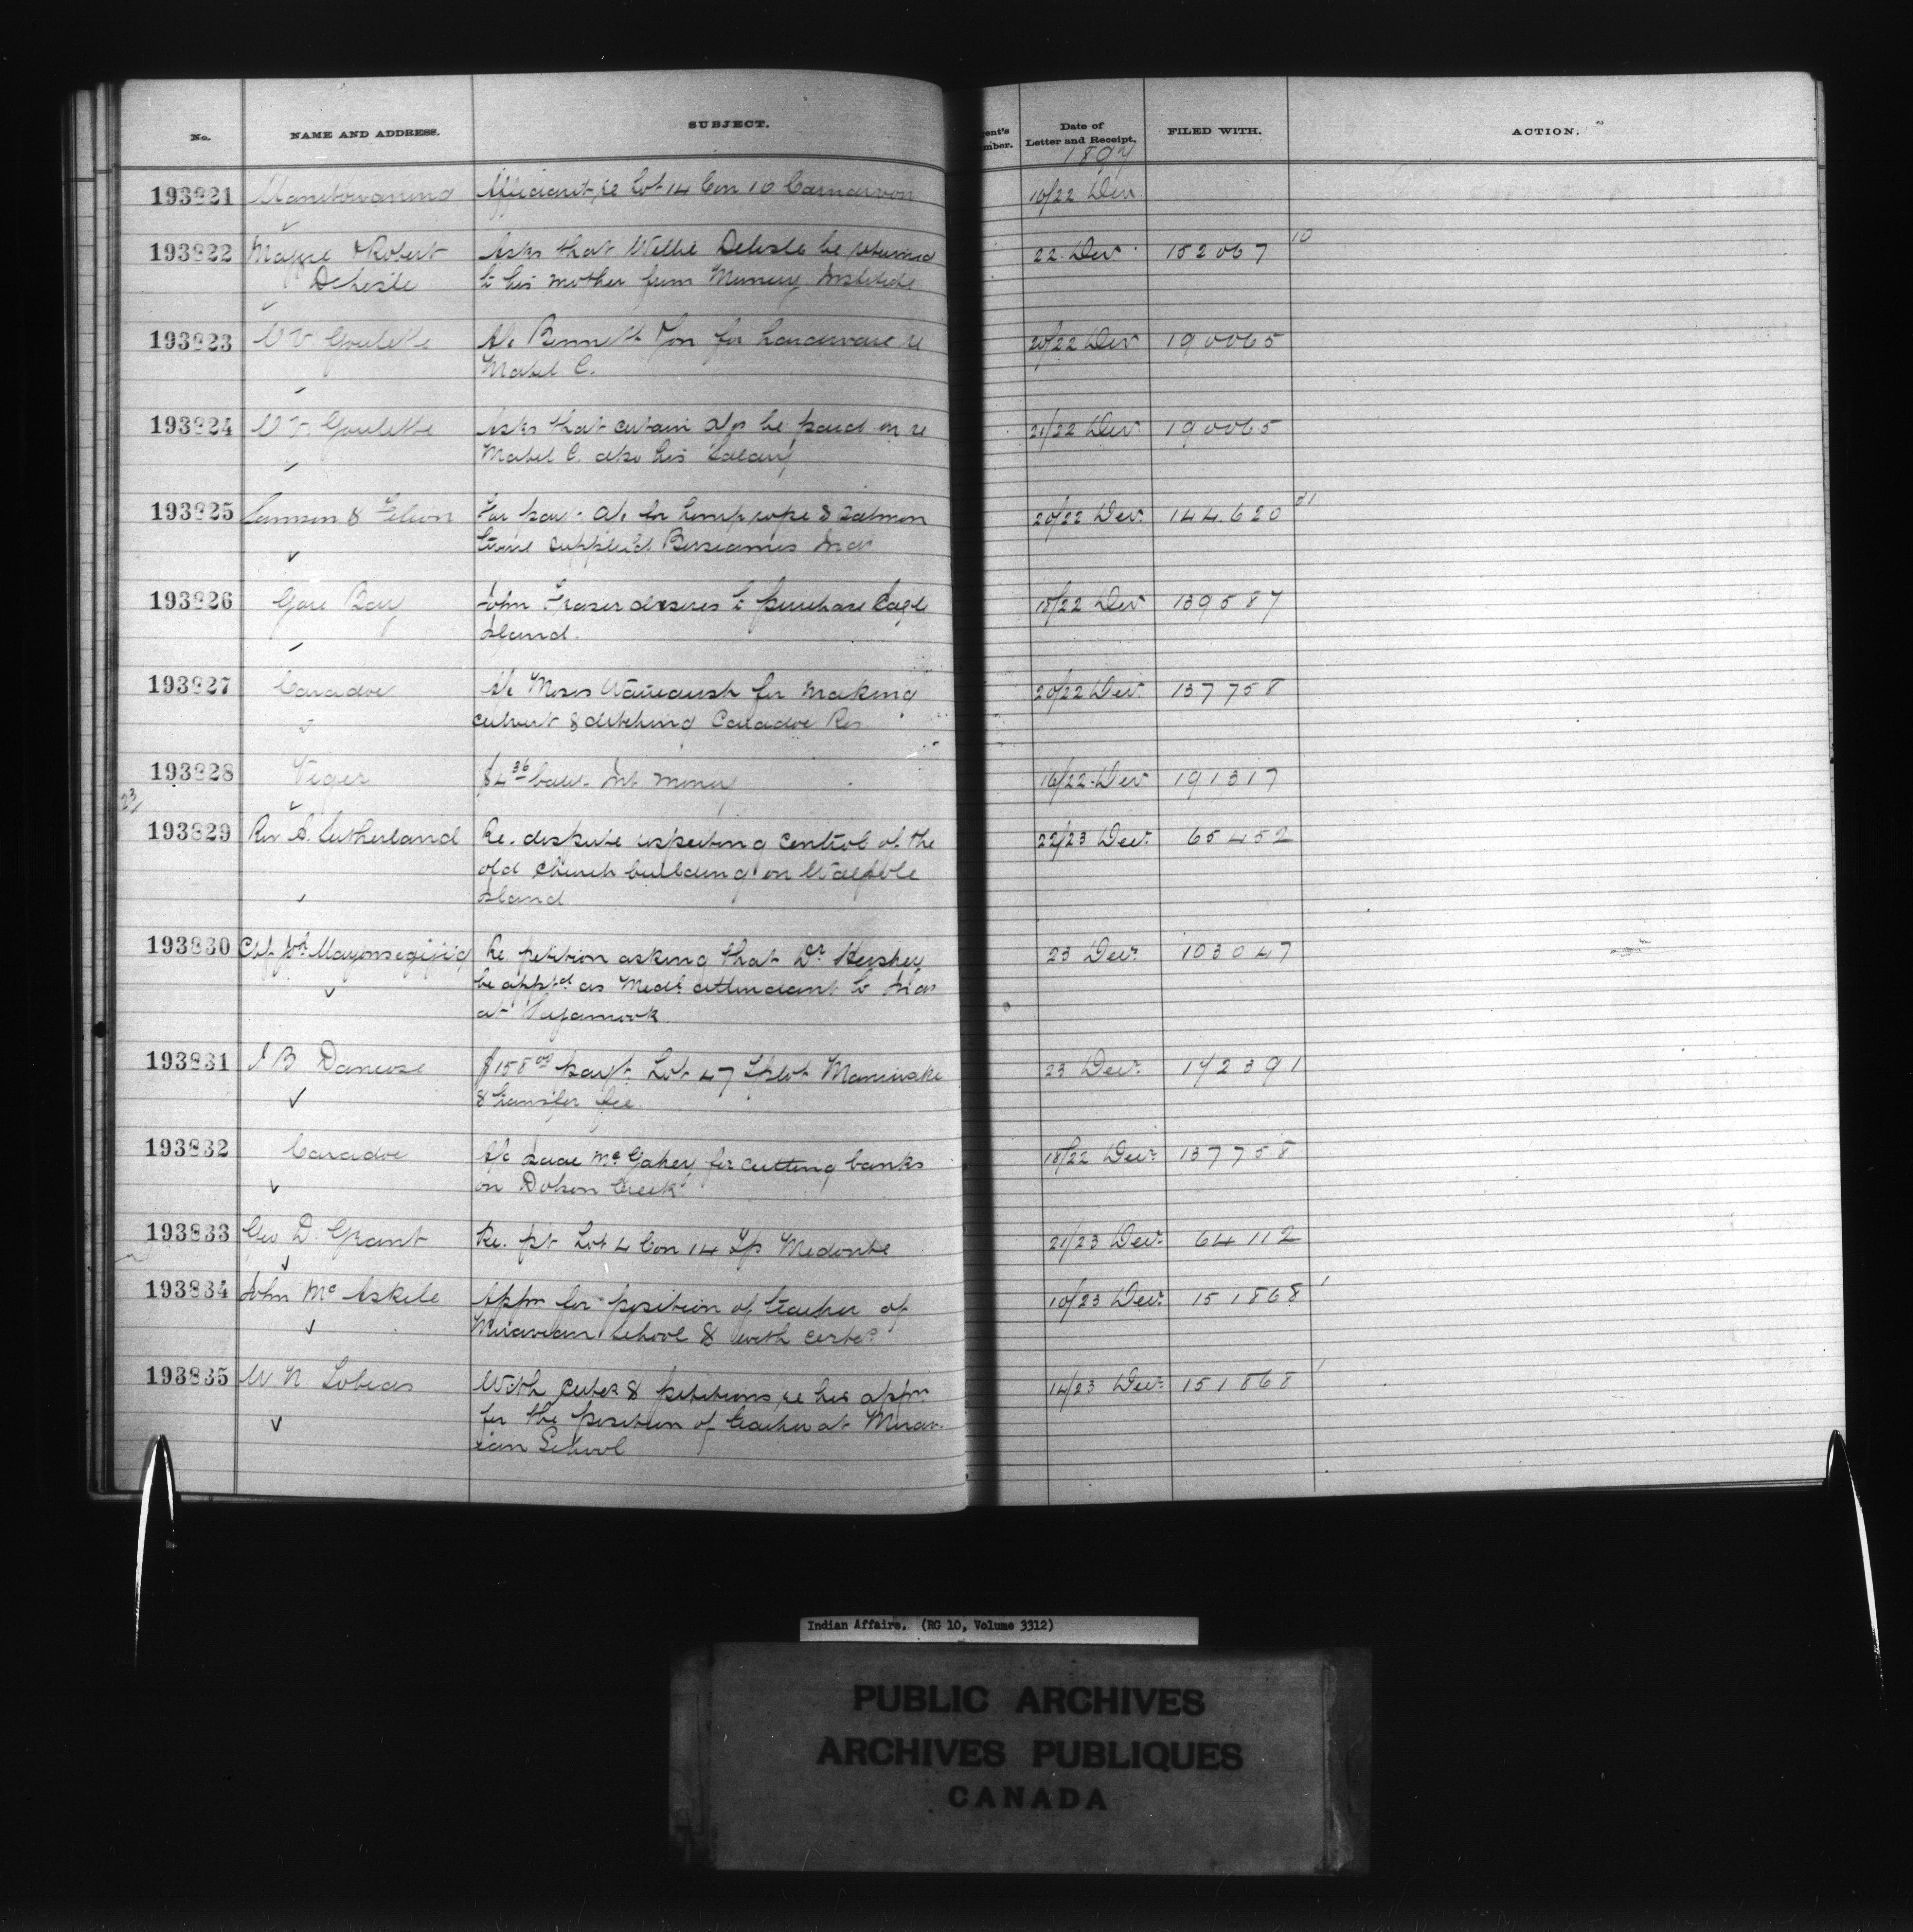 No. NAME AND ADDRESS. SUBJECT. Date of Letter and Receipt. FILED WITH. ACTION.
1897
193821 Manitowaning Affidavit re Lot 14 Con 10 Carnarvon 10/22 Dec
193822 Robert Asks that Willie Delisle be returned 22 Dec 152067 10
Delisle to his mother from Muncey Institute
193823 W V Goulette A/c Bennett for hardware re 20/22 Dec 190065
Mabel C.
193824 W V. Goulette Asks that certain a/cs be paid in re 21/22 Dec 190065
Mabel C. also his Salary
193825 Samson & Filion For pay't a/c for hemp rope & salmon 20/22 Dec. 144.620
twine supplied Bersiamis Inds
193826 Gore Bay John Fraser desires to purchase Eagle 18/22 Dec 139587
Island.
193827 Caradoc A/c Moses for making 20/22 Dec. 137758
culvert & ditching Caradoc Res
193828 Viger $4 36 Int money 16/22 Dec 191317
23/
193829 Rev A. Sutherland Re. dispute respecting control of the 22/23 Dec. 65452
old Church building on Walpole
Island
193830 Re petition asking that Dr 23 Dec. 103047
be apptd as Medl attendant to Inds
at
193831 J B $158 00 pay't Lot 47 Maniwaki 23 Dec. 142391
& transfer fee.
193832 Caradoc A/c Isaac for cutting banks 18/22 Dec. 137758
on Dolson Creek
193833 Geo D. Grant Re. pt Lot 4 Con 14 Tp Medonte 21/23 Dec. 64112
193834 John McAskile Appn for position of teacher of 10/23 Dec. 151868 1
Moravian School & with certes
193835 W N Tobias With certes & petitions re his appn 14/23 Dec. 151868 1
for the position of teacher at Morav-
ian School
Indian Affairs. (RG 10, Volume 3312)
PUBLIC ARCHIVES
ARCHIVES PUBLIQUES
CANADA